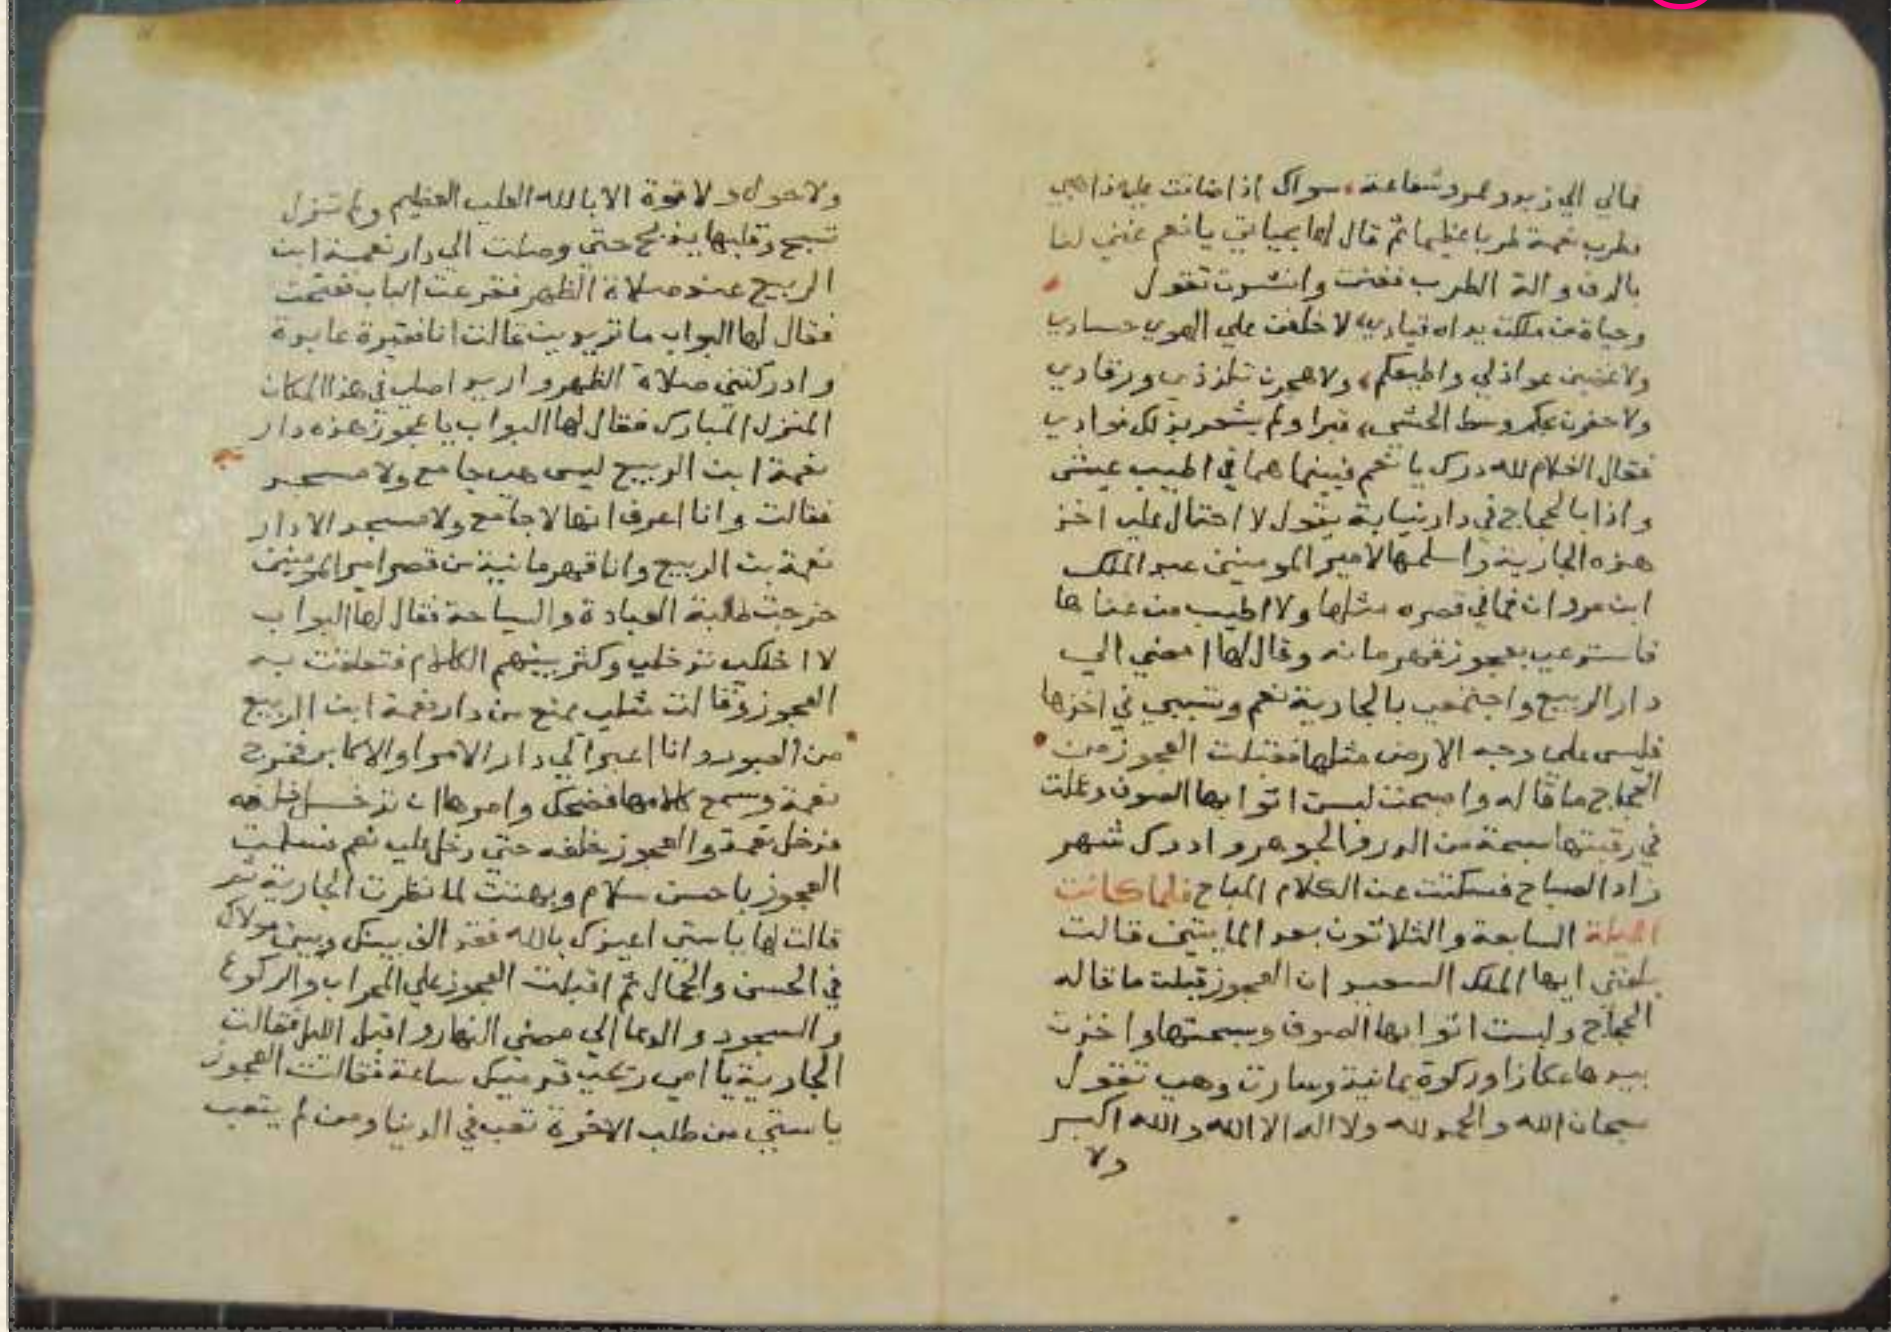 فمالي الي زيد وعمرو شفاعة، سواك اذا ضاقت علي مذاهبي
فطرب نعمة طربا عظيما ثم قال لها بحياتي يا نعم غني لنا
بالدف والة الطرب فغنت وانشدت تقول
وحياة من ملكت يداه قيادي، لاخلفن علي الهوي حسادي
ولاعصين عواذلي واطيعكم، ولاهجرن تلذذي ورقادي
ولاحفرن لكم وسط الحشي، قبرا ولم يشعر بذلك فوادي
فقال الغلام لله درك يا نعم فبينما هما في اطيب عيش
واذا بالحجاج في دار نيابة يقول لا احتال علي اخذ
هذه الجارية واسلمها لامير المومنين عبد الملك
ابن مروان فما في قصره مثلها ولا اطيب من غناها
فاستدعي بعجوز قهرمانه وقال لها امضي الي
دار الربيع واجتمعي بالجارية نعم وتسببي في اخذها
فليس علي وجه الارض مثلها فقبلت العجوز من
الحجاج ما قاله واصبحت لبست اثوابها الصوف وعملت
في رقبتها سبحة من الدر والجوهر وادرك شهر
زاد الصباح فسكتت عن الكلام المباح فلما كانت
الليلة السابعة والثلاثون بعد المايتين قالت
بلغني ايها الملك السعيد ان العجوز قبلت ما قاله
الحجاج ولبست اثوابها الصوف وسبحتها واخذت
بيدها عكازا وركوة يمانية وسارت وهي تقول
سبحان الله والحمد لله ولا اله الا الله والله اكبر
ولا
ولا حول ولا قوة الا بالله العلي العظيم ولم تزل
تسبح وقلبها يذبح حتي وصلت الي دار نعمة ابن
الربيع عند صلاة الظهر فقرعت الباب ففتحت
فقال لها البواب ما تريدين قالت انا فقيرة عابدة
وادركتني صلاة الظهر واريد اصلي في هذا المكان
المنزل المبارك فقال لها البواب يا عجوز هذه دار
نعمة ابن الربيع ليس هي جامع ولا مسجد
فقالت وانا اعرف انها لا جامع ولا مسجد الا دار
نعمة بن الربيع وانا قهرمانية من قصر امير المومنين
خرجت طالبة العبادة والسياحة فقال لها البواب
لا اخليكي تدخلي وكثر بينهم الكلام فتعلقت به
العجوز وقالت مثلي يمنع من دار نعمة ابن الربيع
من العبور وانا اعبر الي دار الامرا والاكابر فخرج
نعمة وسمع كلامها فضحك وامرها ان تدخل خلفه
فدخل نعمة والعجوز خلفه حتي دخل علي نعم فسلمت
العجوز باحسن سلام وبهتت لما نظرت الجارية ثم
قالت لها يا ستي اعيذك بالله فقد الف بينك وبين مولاك
في الحسن والجمال ثم اقبلت العجوز علي المحراب والركوع
والسجود والدعا الي مضي النهار واقبل الليل فقالت
الجارية يا امي ريحي قدميك ساعة فقالت العجوز
يا ستي من طلب الاخرة تعب في الدنيا ومن لم يتعب